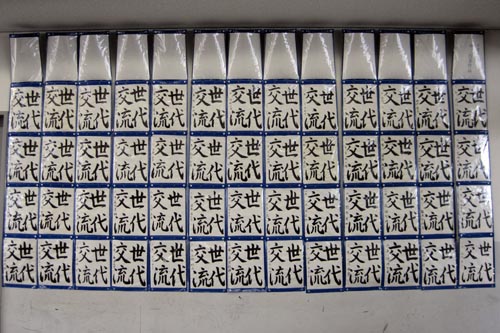 世代交流 世代交流 世代交流 世代交流 世代交流 世代交流 世代交流 世代交流 世代交流 世代交流 世代交流 世代交流 世代交流
世代交流 世代交流 世代交流 世代交流 世代交流 世代交流 世代交流 世代交流 世代交流 世代交流 世代交流 世代交流 世代交流
世代交流 世代交流 世代交流 世代交流 世代交流 世代交流 世代交流 世代交流 世代交流 世代交流 世代交流 世代交流 世代交流
世代交流 世代交流 世代交流 世代交流 世代交流 世代交流 世代交流 世代交流 世代交流 世代交流 世代交流 世代交流 世代交流